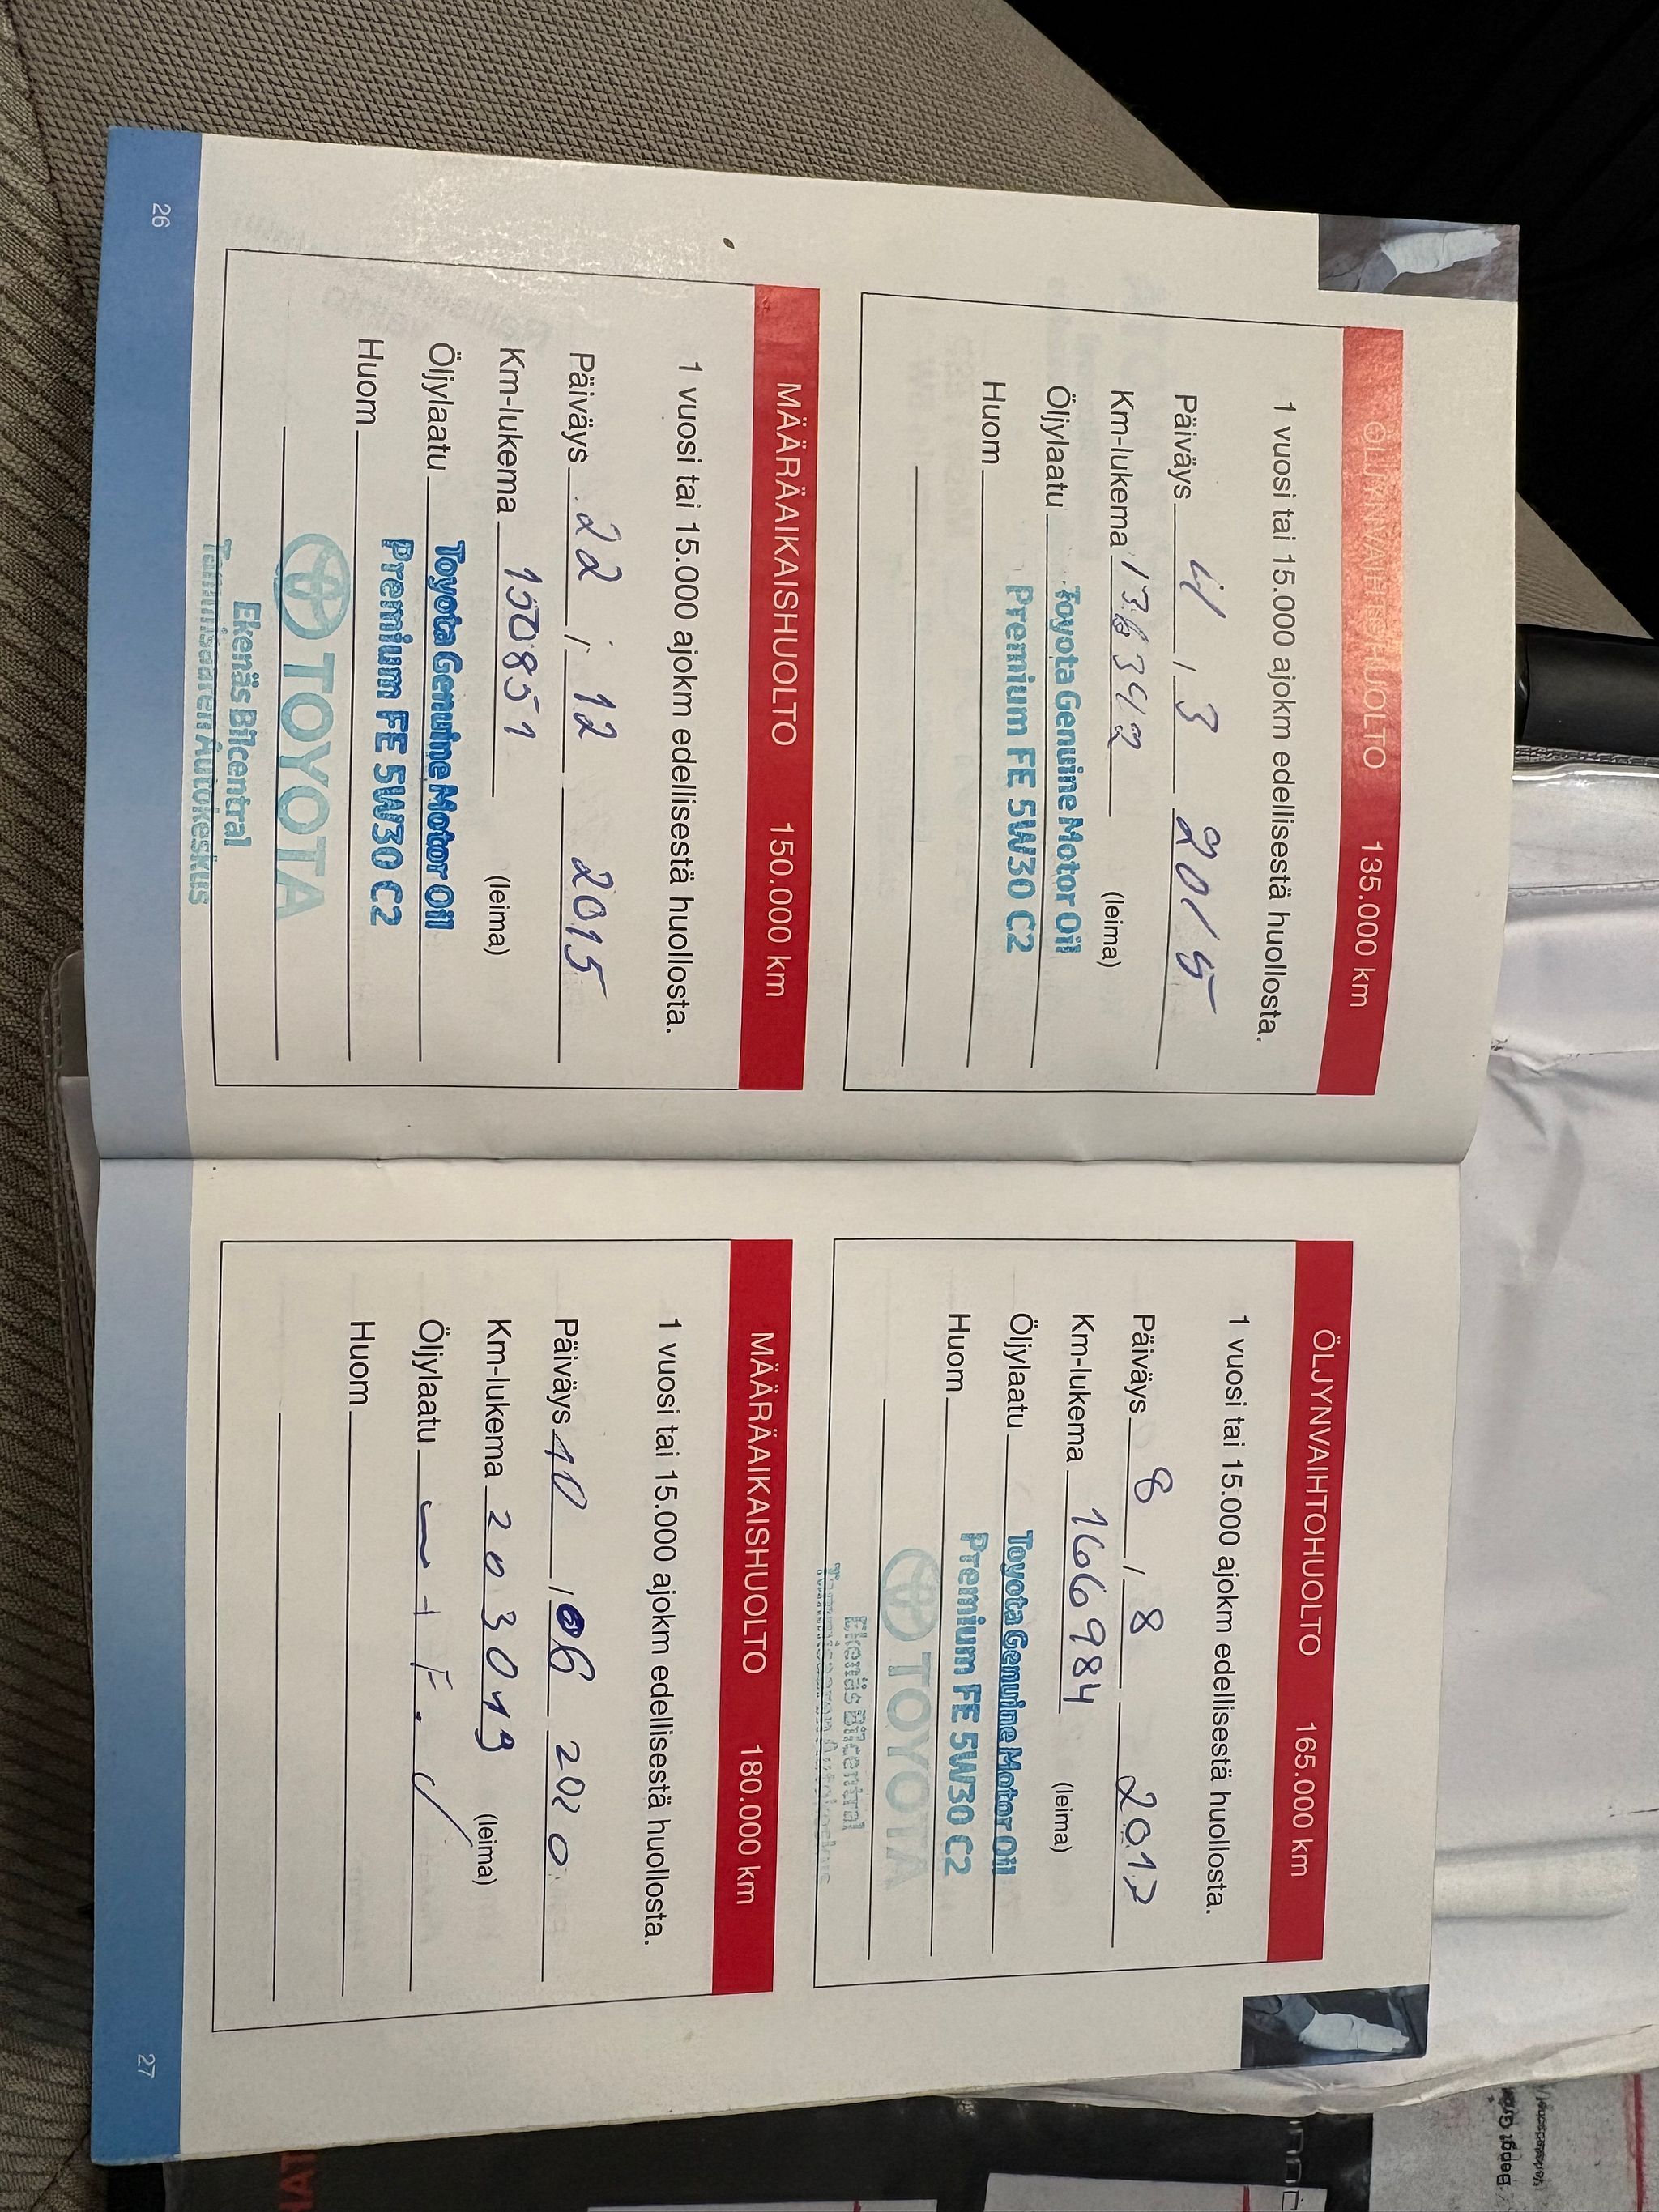 ÖLJYNVAIHTOHUOLTO 135.000 km
1 vuosi tai 15.000 ajokm edellisestä huollosta.
Päiväys 4 / 3 2015
Km-lukema 136342 (leima)
Öljylaatu Toyota Genuine Motor Oil
Premium FE 5W30 C2
Huom
MÄÄRÄAIKAISHUOLTO 150.000 km
1 vuosi tai 15.000 ajokm edellisestä huollosta.
Päiväys 22 / 12 2015
Km-lukema 150851 (leima)
Öljylaatu Toyota Genuine Motor Oil
Premium FE 5W30 C2
Huom
TOYOTA
Ekenäs Bilcentral
Tammisaaren Autokeskus
26
ÖLJYNVAIHTOHUOLTO 165.000 km
1 vuosi tai 15.000 ajokm edellisestä huollosta.
Päiväys 8 / 8 2017
Km-lukema 166984 (leima)
Öljylaatu Toyota Genuine Motor Oil
Premium FE 5W30 C2
Huom
TOYOTA
Ekenäs Bilcentral
Tammisaaren Autokeskus
MÄÄRÄAIKAISHUOLTO 180.000 km
1 vuosi tai 15.000 ajokm edellisestä huollosta.
Päiväys 10 / 06 2020
Km-lukema 203019 (leima)
Öljylaatu
Huom
27